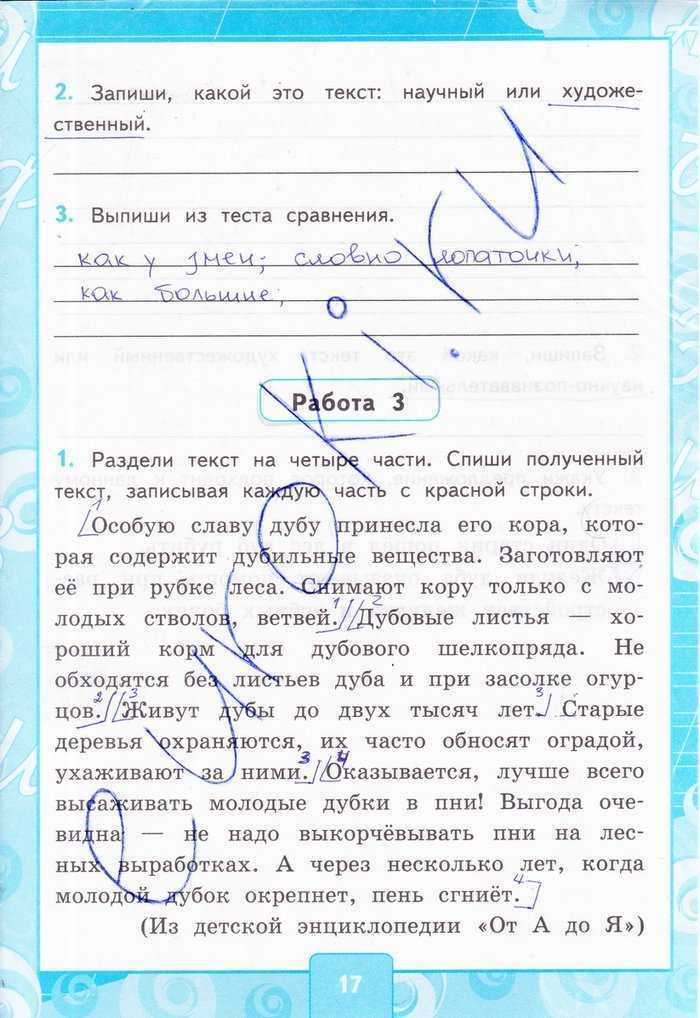 2. Запиши, какой это текст: научный или художе-
ственный.
3. Выпиши из теста сравнения.
как у змеи; словно лопаточки;
как большие;
Работа 3
1. Раздели текст на четыре части. Спиши полученный
текст, записывая каждую часть с красной строки.
1
Особую славу дубу принесла его кора, кото-
рая содержит дубильные вещества. Заготовляют
её при рубке леса. Снимают кору только с мо-
лодых стволов, ветвей. 1 2 Дубовые листья — хо-
роший корм для дубового шелкопряда. Не
обходятся без листьев дуба и при засолке огур-
цов. 2 3 Живут дубы до двух тысяч лет. 3 Старые
деревья охраняются, их часто обносят оградой,
ухаживают за ними. 3 4 Оказывается, лучше всего
высаживать молодые дубки в пни! Выгода оче-
видна — не надо выкорчёвывать пни на лес-
ных выработках. А через несколько лет, когда
молодой дубок окрепнет, пень сгниёт. 4
(Из детской энциклопедии «От А до Я»)
17